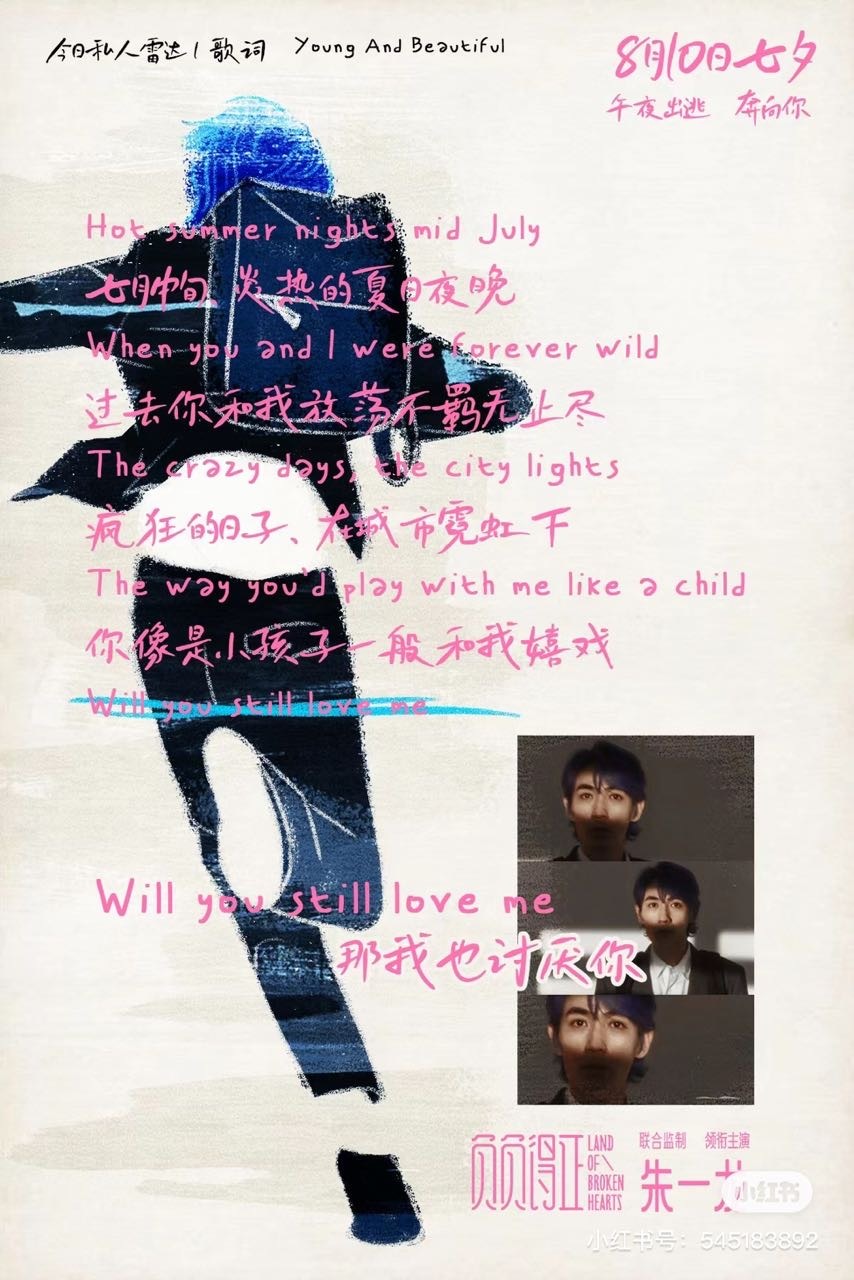 今日私人雷达 | 歌词 Young And Beautiful
8月10日七夕
午夜出逃 奔向你
Hot summer nights mid July
七月中旬、炎热的夏日夜晚
When you and I were forever wild
过去你和我放荡不羁无止尽
The crazy days, the city lights
疯狂的日子、在城市霓虹下
The way you'd play with me like a child
你像是小孩子一般和我嬉戏
Will you still love me
Will you still love me
那我也讨厌你
负负得正
LAND
OF\
BROKEN
HEARTS
联合监制 领衔主演
朱一
小红书
小红书号：545183892